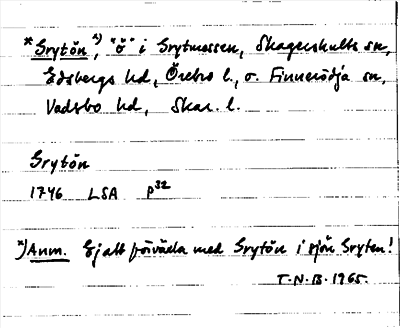 *Grytön,ˣ⁾ "ö" i Grytmossen, Skagershults sn,
Edsbergs hd, Örebro l., o. Finnerödja sn,
Vadsbo hd, Skar. l.
Grytön
1746 LSA p³²
ˣ⁾Anm. Ej att förväxla med Grytön i sjön Gryten!
T.N.B. 1965.